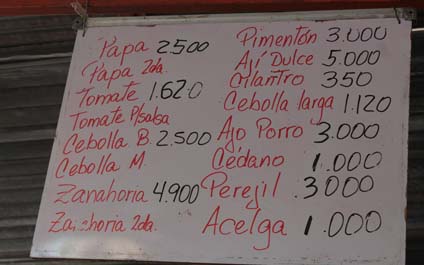 Papa 2.500
Papa 2da.
Tomate 1.620
Tomate P/salsa
Cebolla B. 2.500
Cebolla M.
Zanahoria 4.900
Zanahoria 2da.
Pimentón 3.000
Ají Dulce 5.000
Cilantro 350
Cebolla larga 1.120
Ajo Porro 3.000
Cédano 1.000
Perejil 3000
Acelga 1.000